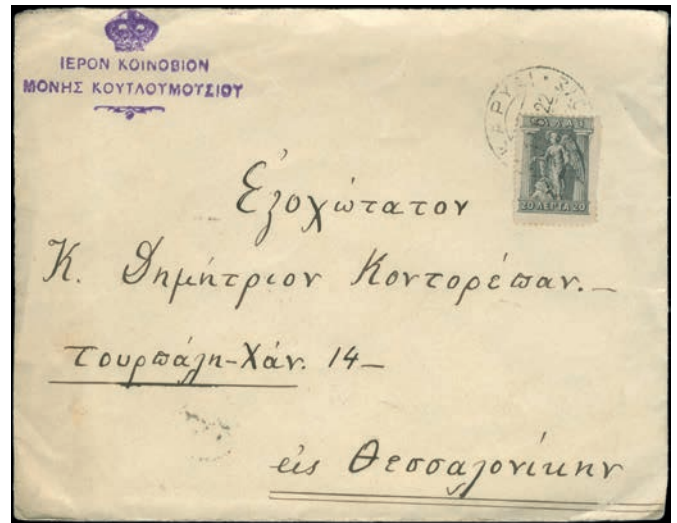 ΙΕΡΟΝ ΚΟΙΝΟΒΙΟΝ
ΜΟΝΗΣ ΚΟΥΤΛΟΥΜΟΥΣΙΟΥ
22
20 ΛΕΠΤΑ 20
Ἐξοχώτατον
Κ. Δημήτριον Κοντορέπαν.—
Τουρπάλη-Χάν. 14—
εἰς Θεσσαλονίκην